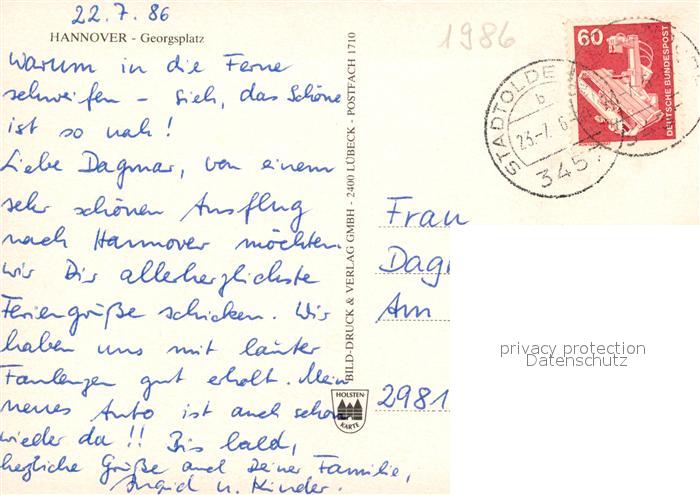 22.7.86
HANNOVER - Georgsplatz
Warum in die Ferne
schweifen - Sieh, das Schöne
ist so nah!
Liebe Dagmar, von einem
sehr schönen Ausflug
nach Hannover möchten
wir Dir allerherzlichste
Feriengrüße schicken. Wir
haben uns mit lauter
Faulenzen gut erholt. Mein
neues Auto ist auch schon
wieder da!! Bis bald,
herzliche Grüße auch Deiner Familie,
Ingrid u. Kinder.
BILD-DRUCK & VERLAG GMBH - 2400 LÜBECK - POSTFACH 1710
HOLSTEN
KARTE
1986
60
DEUTSCHE BUNDESPOST
STADTOLDE
b
23.-7.8
345
Frau
Dag
Am
2981
privacy protection
Datenschutz